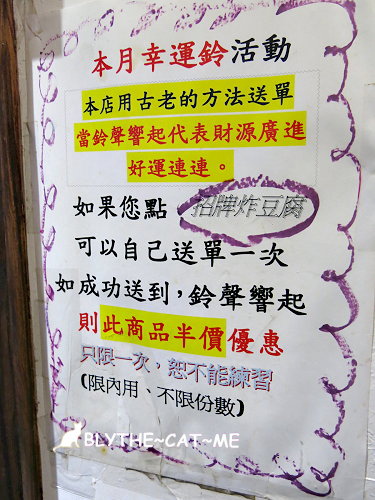 本月幸運鈴活動
本店用古老的方法送單
當鈴聲響起代表財源廣進
好運連連。
如果您點，招牌炸豆腐
可以自己送單一次
如成功送到，鈴聲響起
則此商品半價優惠
只限一次，恕不能練習
(限內用、不限份數)
BLYTHE~CAT~ME